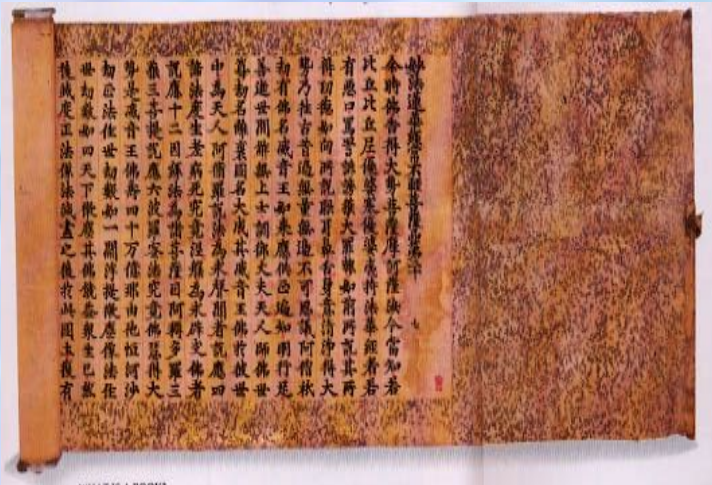 妙法蓮華經常不輕菩薩品第二十 七
尒時佛告得大勢菩薩摩訶薩汝今當知若
比丘比丘尼優婆塞優婆夷持法華經者若
有惡口罵詈誹謗獲大罪報如前所說其所
得功德如向所說眼耳鼻舌身意清淨得大
勢乃往古昔過無量無邊不可思議阿僧祇
劫有佛名威音王如來應供正遍知明行足
善逝世間解無上士調御丈夫天人師佛世
尊劫名離衰國名大成其威音王佛於彼世
中為天人阿脩羅說法為求聲聞者說應四
諦法度生老病死究竟涅槃為求辟支佛者
說應十二因緣法為諸菩薩因阿耨多羅三
藐三菩提說應六波羅蜜法究竟佛慧得大
勢是威音王佛壽四十万億那由他恒河沙
劫正法住世劫數如一閻浮提微塵像法住
世劫數如四天下微塵其佛饒益眾生已然
後滅度正法像法滅盡之後於此國土復有